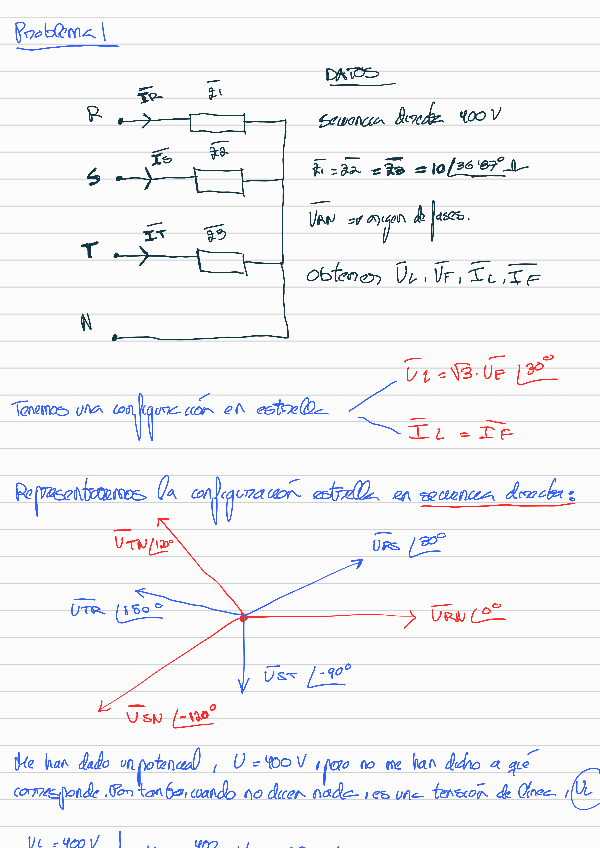 Problema 1
DATOS
R I̅R Z̅1
Secuencia directa 400 V
S I̅S Z̅2
Z̅1 = Z̅2 = Z̅3 = 10∠36'87° Ω
T I̅T Z̅3
U̅RN => origen de fases.
Obtener U̅L, U̅F, I̅L, I̅F
N
U̅L = √3 · U̅F ∠30°
Tenemos una configuración en estrella
I̅L = I̅F
Representaremos la configuración estrella en secuencia directa:
U̅TN ∠120°
U̅RS ∠30°
U̅TR ∠150°
U̅RN ∠0°
U̅ST ∠-90°
U̅SN ∠-120°
Me han dado un potencial, U = 400 V, pero no me han dicho a qué
corresponde. Por tanto, cuando no dicen nada, es una tensión de línea, UL
UL = 400 V